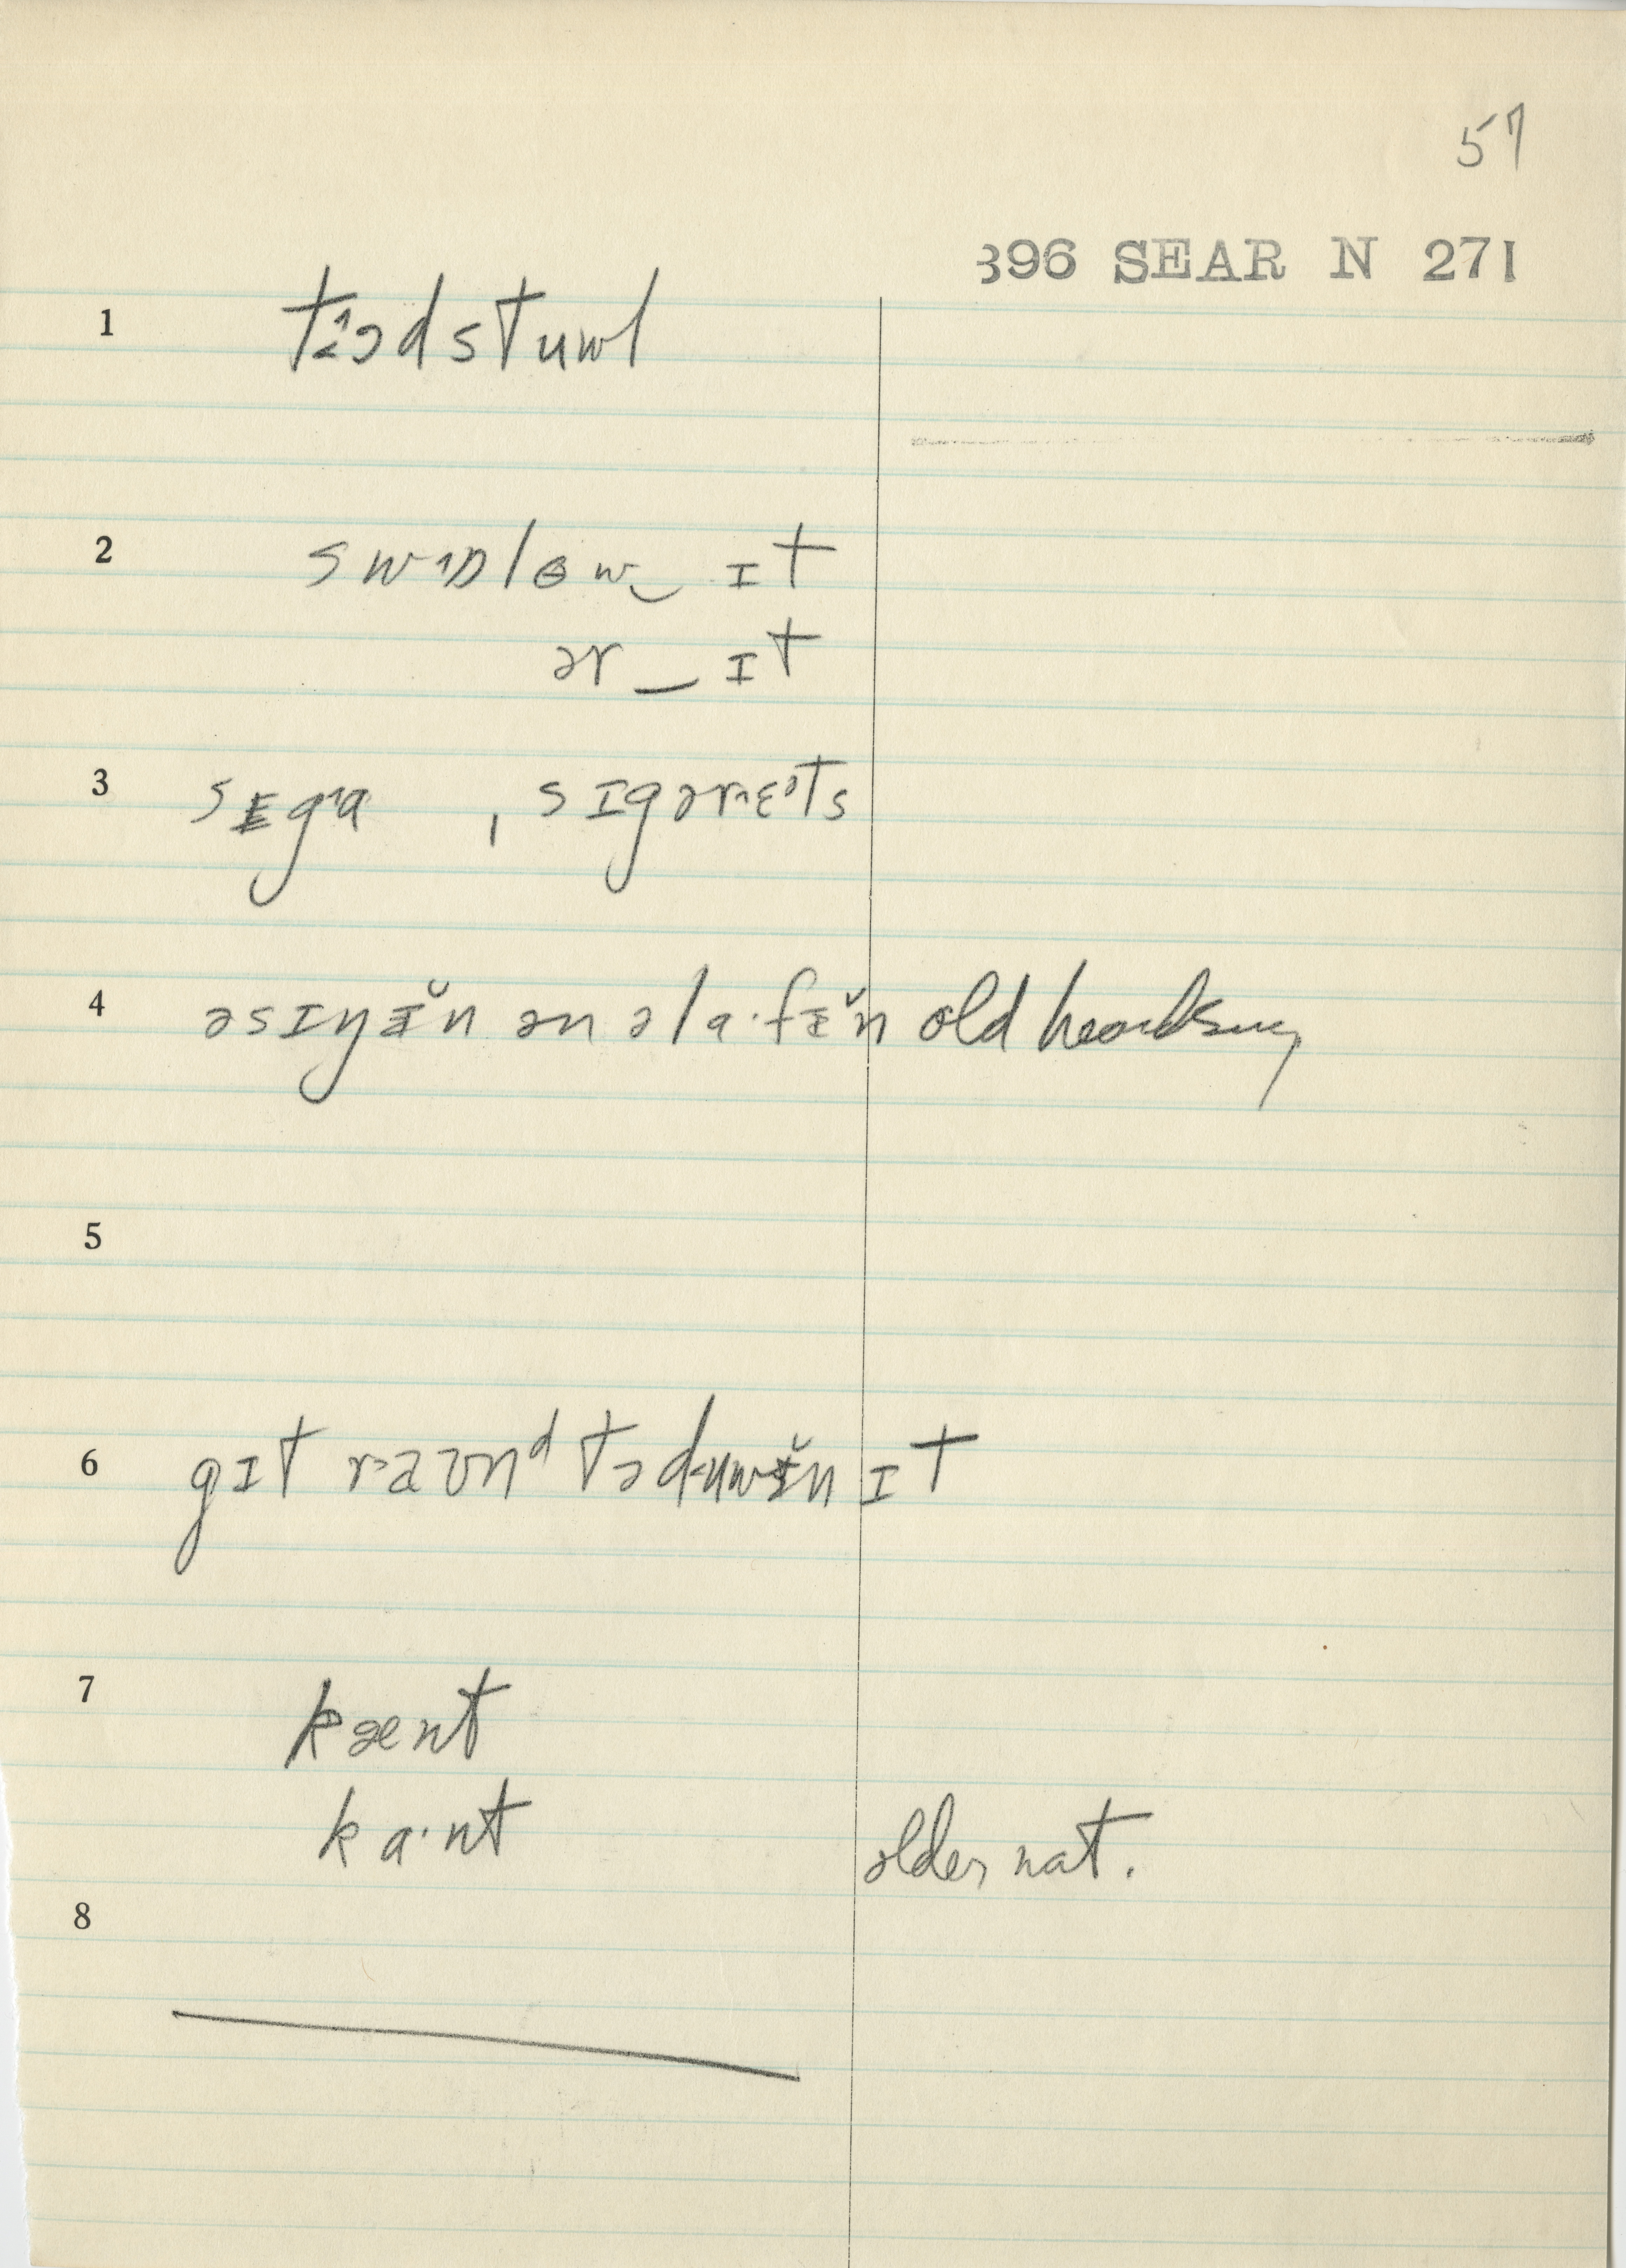 57
396 SEAR N 271
1 tɨədstuwl
2 swɒləw‿ɪt
ər‿ɪt
3 sɪga, sɪgərɛᵊts
4 əsɪŋɪ̆n ən əla·fɪ̆n old
5
6 gɪt raʊnᵈ təduwɪ̆n ɪt
7 kænt
ka·nt older nat.
8